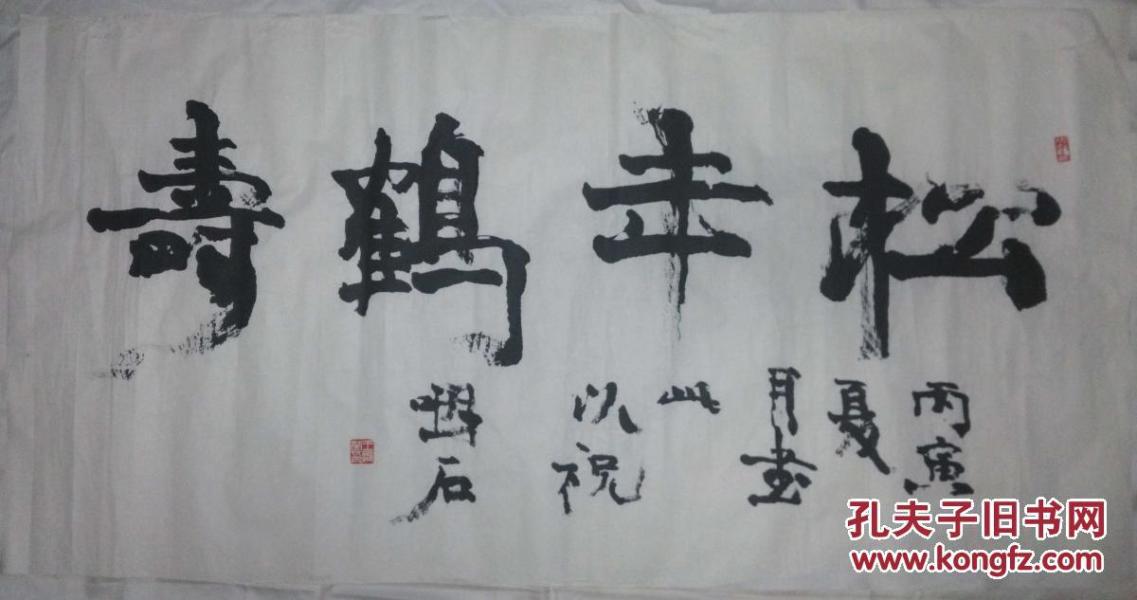 松年鶴壽
丙寅
夏
月書
此
以祝
石
孔夫子旧书网
www.kongfz.com